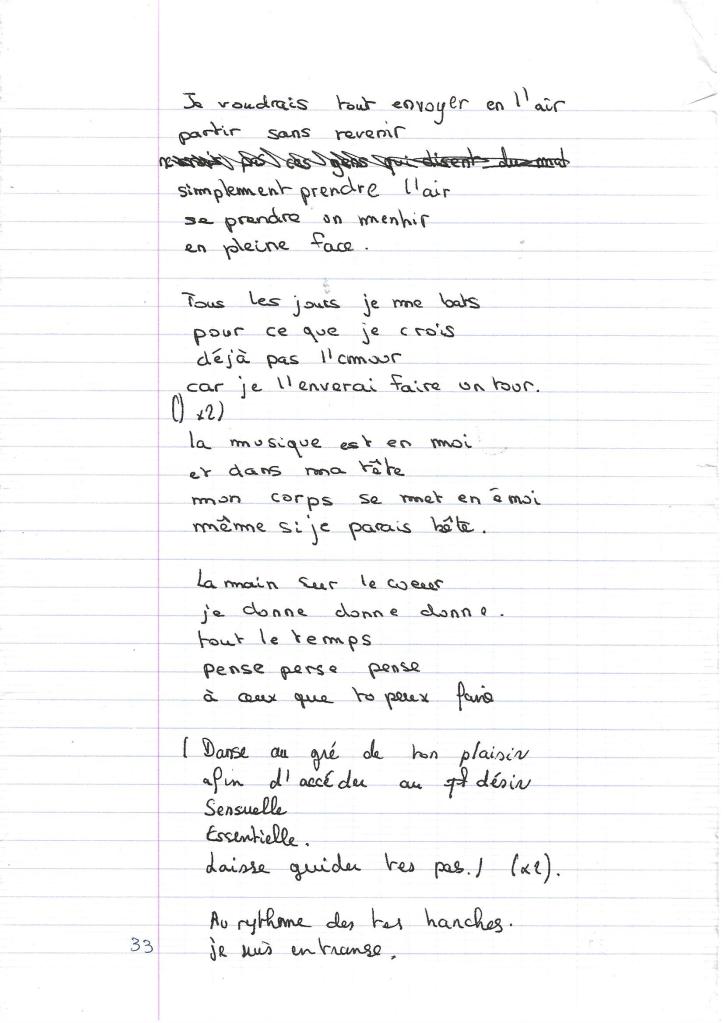 Je voudrais tout envoyer en l'air
partir sans revenir
pas ces gens qui disent du mal
simplement prendre l'air
se prendre un menhir
en pleine face.
Tous les jours je me bats
pour ce que je crois
déjà pas l'amour
car je l'enverai faire un tour.
() x2)
la musique est en moi
et dans ma tête
mon corps se met en émoi
même si je parais bête.
La main sur le coeur
je donne donne donne.
tout le temps
pense pense pense
à ceux que to peux faire
( Danse au gré de ton plaisir
afin d'accéder au désir
Sensuelle
Essentielle.
Laisse guider tes pas. ) (x2).
Au rythme des tes hanches.
je suis en transe.
33